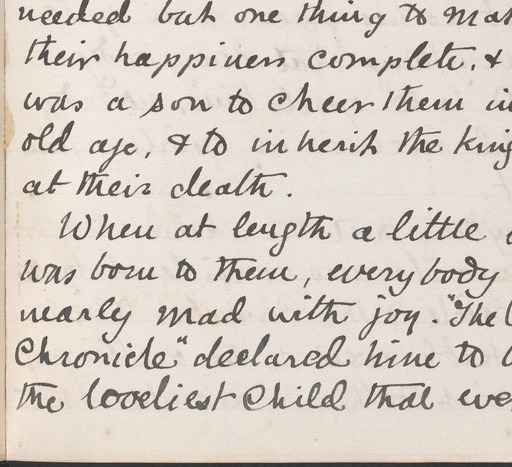 needed but one thing to ma
their happiness complete, &
was a son to cheer them in
old age, & to inherit the king
at their death.
When at length a little
was born to them, everybody
nearly mad with joy. "The
Chronicle" declared him to
the loveliest child that eve